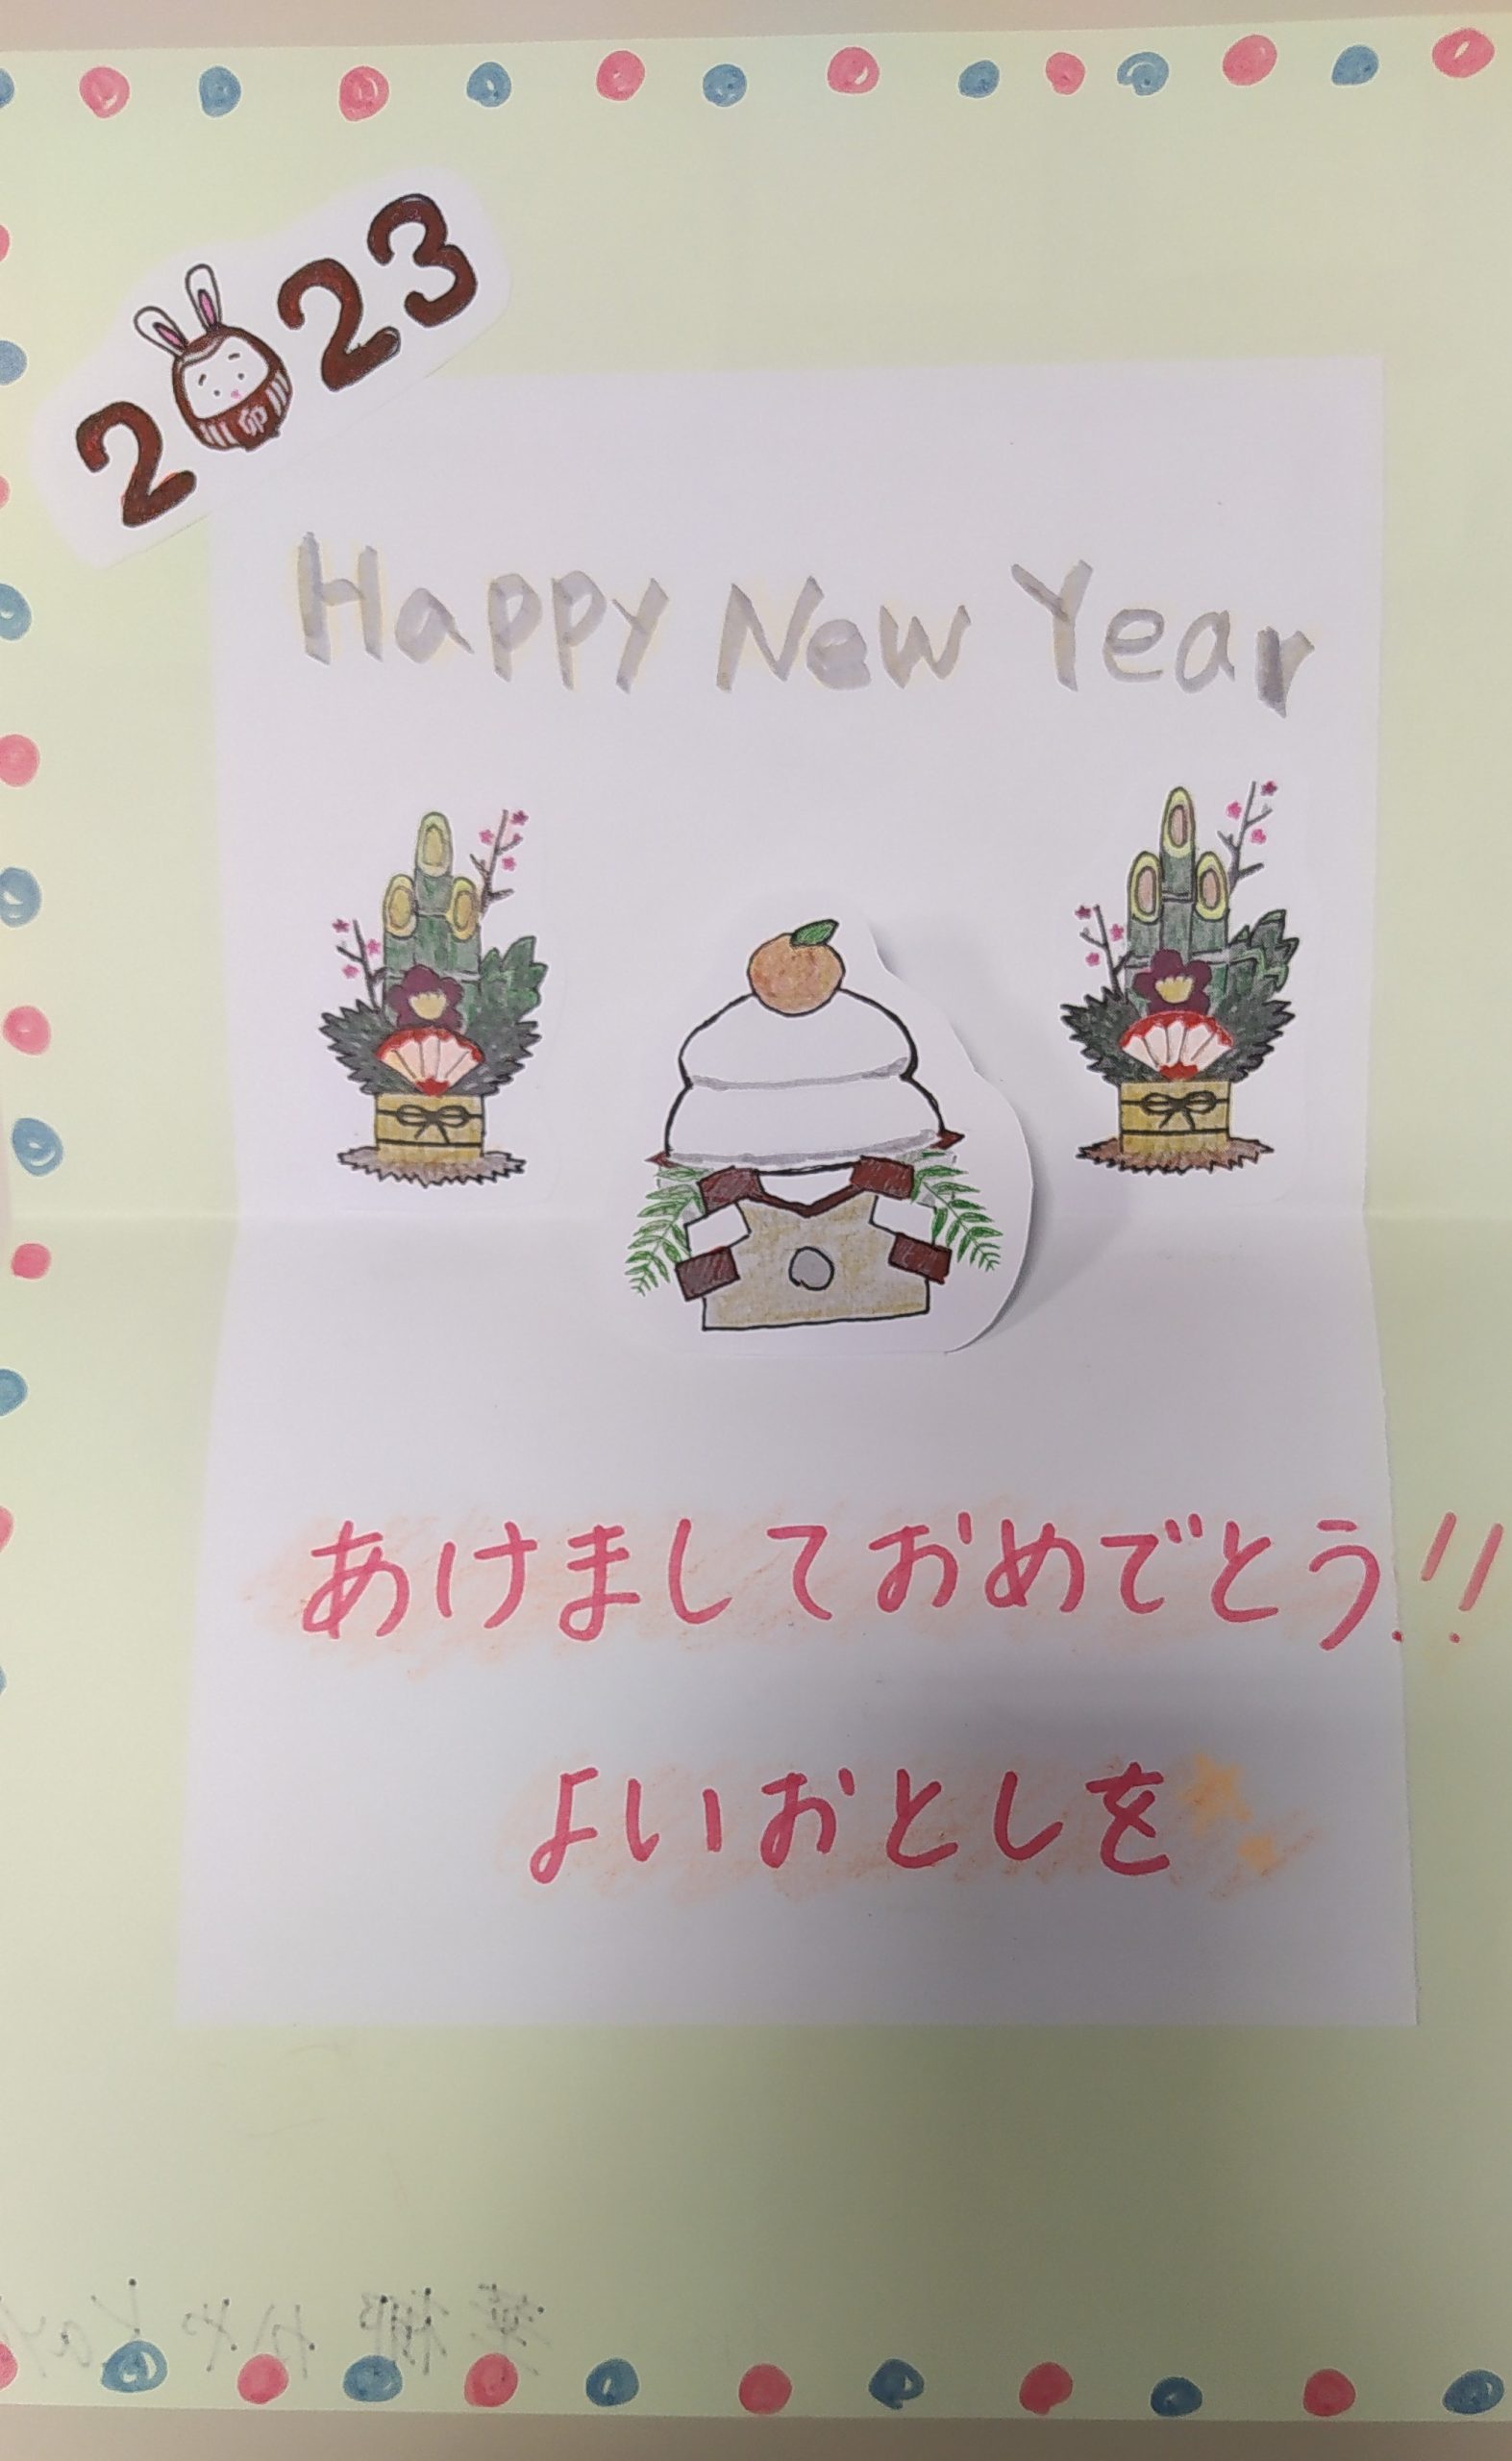 2023
卯
Happy New Year
あけましておめでとう!!
よいおとしを